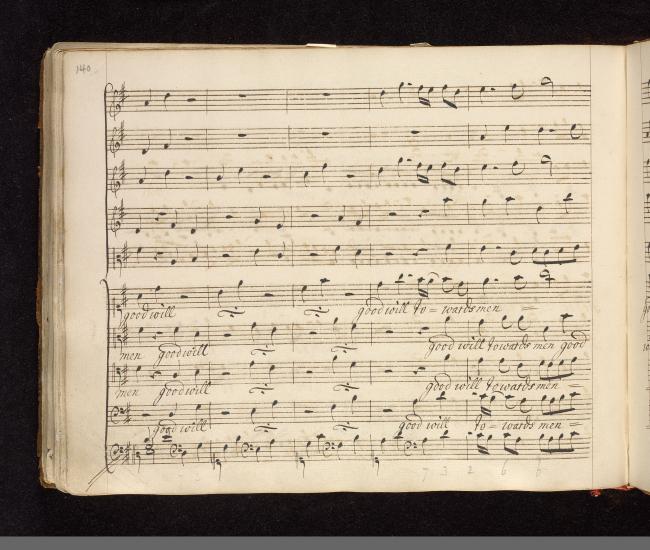 140
good will good will to = wards men =
men good will good will towards men good
men good will good will towards men =
good will good will to = wards men =
7 3 2 6 6